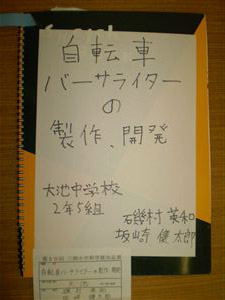 自転車
バーサライター
の
製作、開発
大池中学校
2年5組
磯村 英和
坂山崎 健太郎
自転車バーサライターの製作 開発